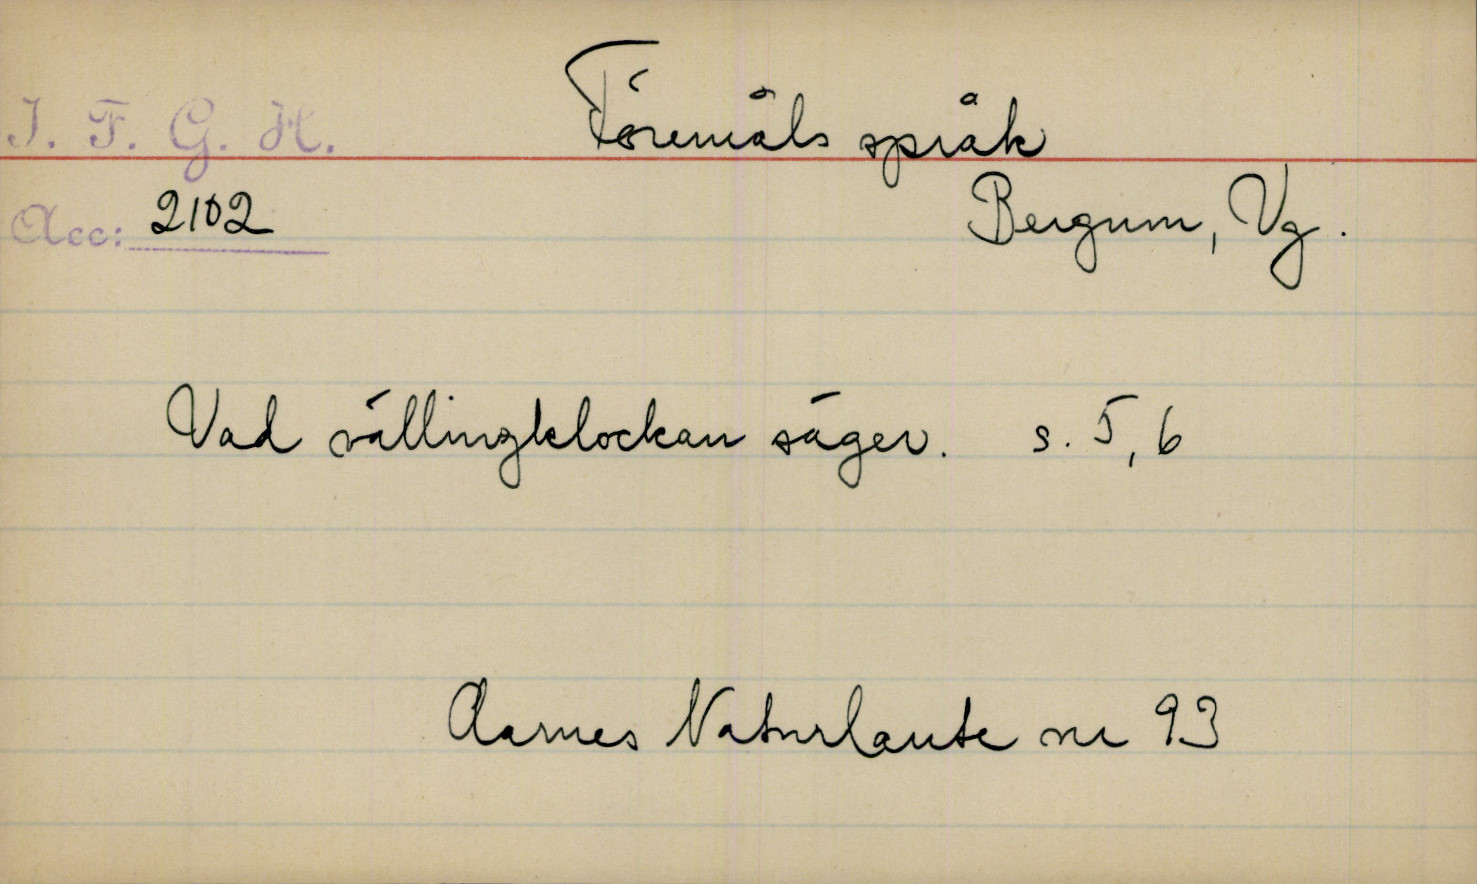 Föremåls språk
I. F. G. H.
Bergum, Vg.
Acc: 2102
Vad vällingklockan säger. s. 5, 6
Aarnes Naturlaute nr 93